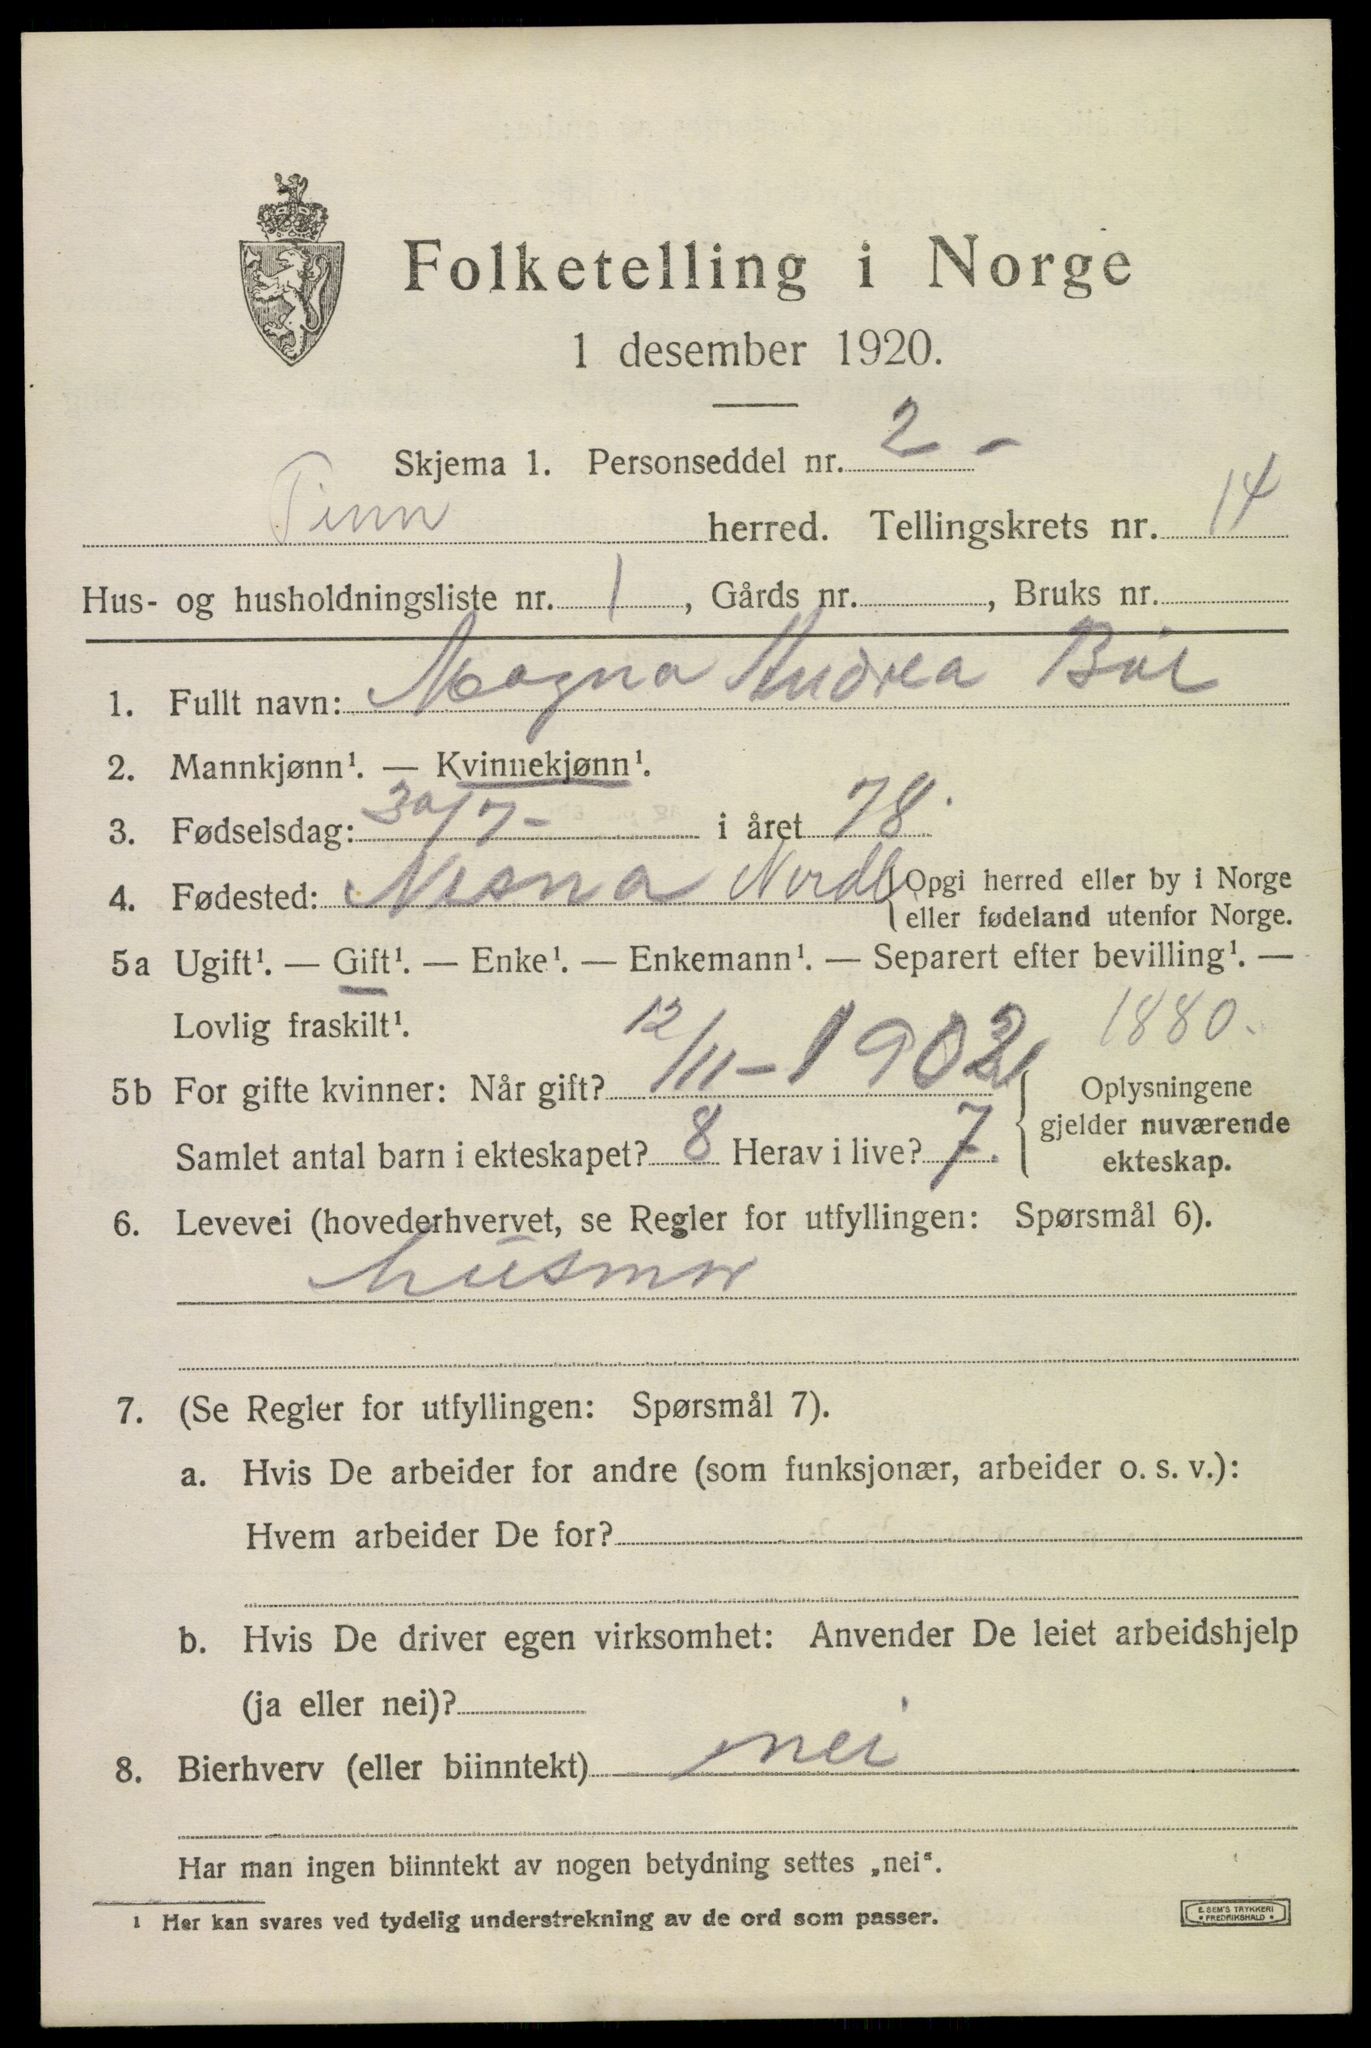 Folketelling i Norge
1 desember 1920.
Skjema 1. Personseddel nr. 2 -
Tinn herred. Tellingskrets nr. 14
Hus- og husholdningsliste nr. 1, Gårds nr. , Bruks nr.
1. Fullt navn: Magna Andrea
2. Mannkjønn¹. — Kvinnekjønn¹.
3. Fødselsdag: 30/7- i året 78.
4. Fødested: Nesna Nordl { Opgi herred eller by i Norge
eller fødeland utenfor Norge.
5a Ugift¹. — Gift¹. — Enke¹. — Enkemann¹. — Separert efter bevilling¹. —
Lovlig fraskilt¹.
1880.
5b For gifte kvinner: Når gift? 12/11-1902 { Oplysningene
gjelder nuværende
Samlet antal barn i ekteskapet? 8 Herav i live? 7. ekteskap.
6. Levevei (hovederhvervet, se Regler for utfyllingen: Spørsmål 6).
husmor
7. (Se Regler for utfyllingen: Spørsmål 7).
a. Hvis De arbeider for andre (som funksjonær, arbeider o. s. v.):
Hvem arbeider De for?
b. Hvis De driver egen virksomhet: Anvender De leiet arbeidshjelp
(ja eller nei)?
8. Bierhverv (eller biinntekt) nei
Har man ingen biinntekt av nogen betydning settes „nei“.
¹ Her kan svares ved tydelig understrekning av de ord som passer.
E. SEM'S TRYKKERI
• FREDRIKSHALD •